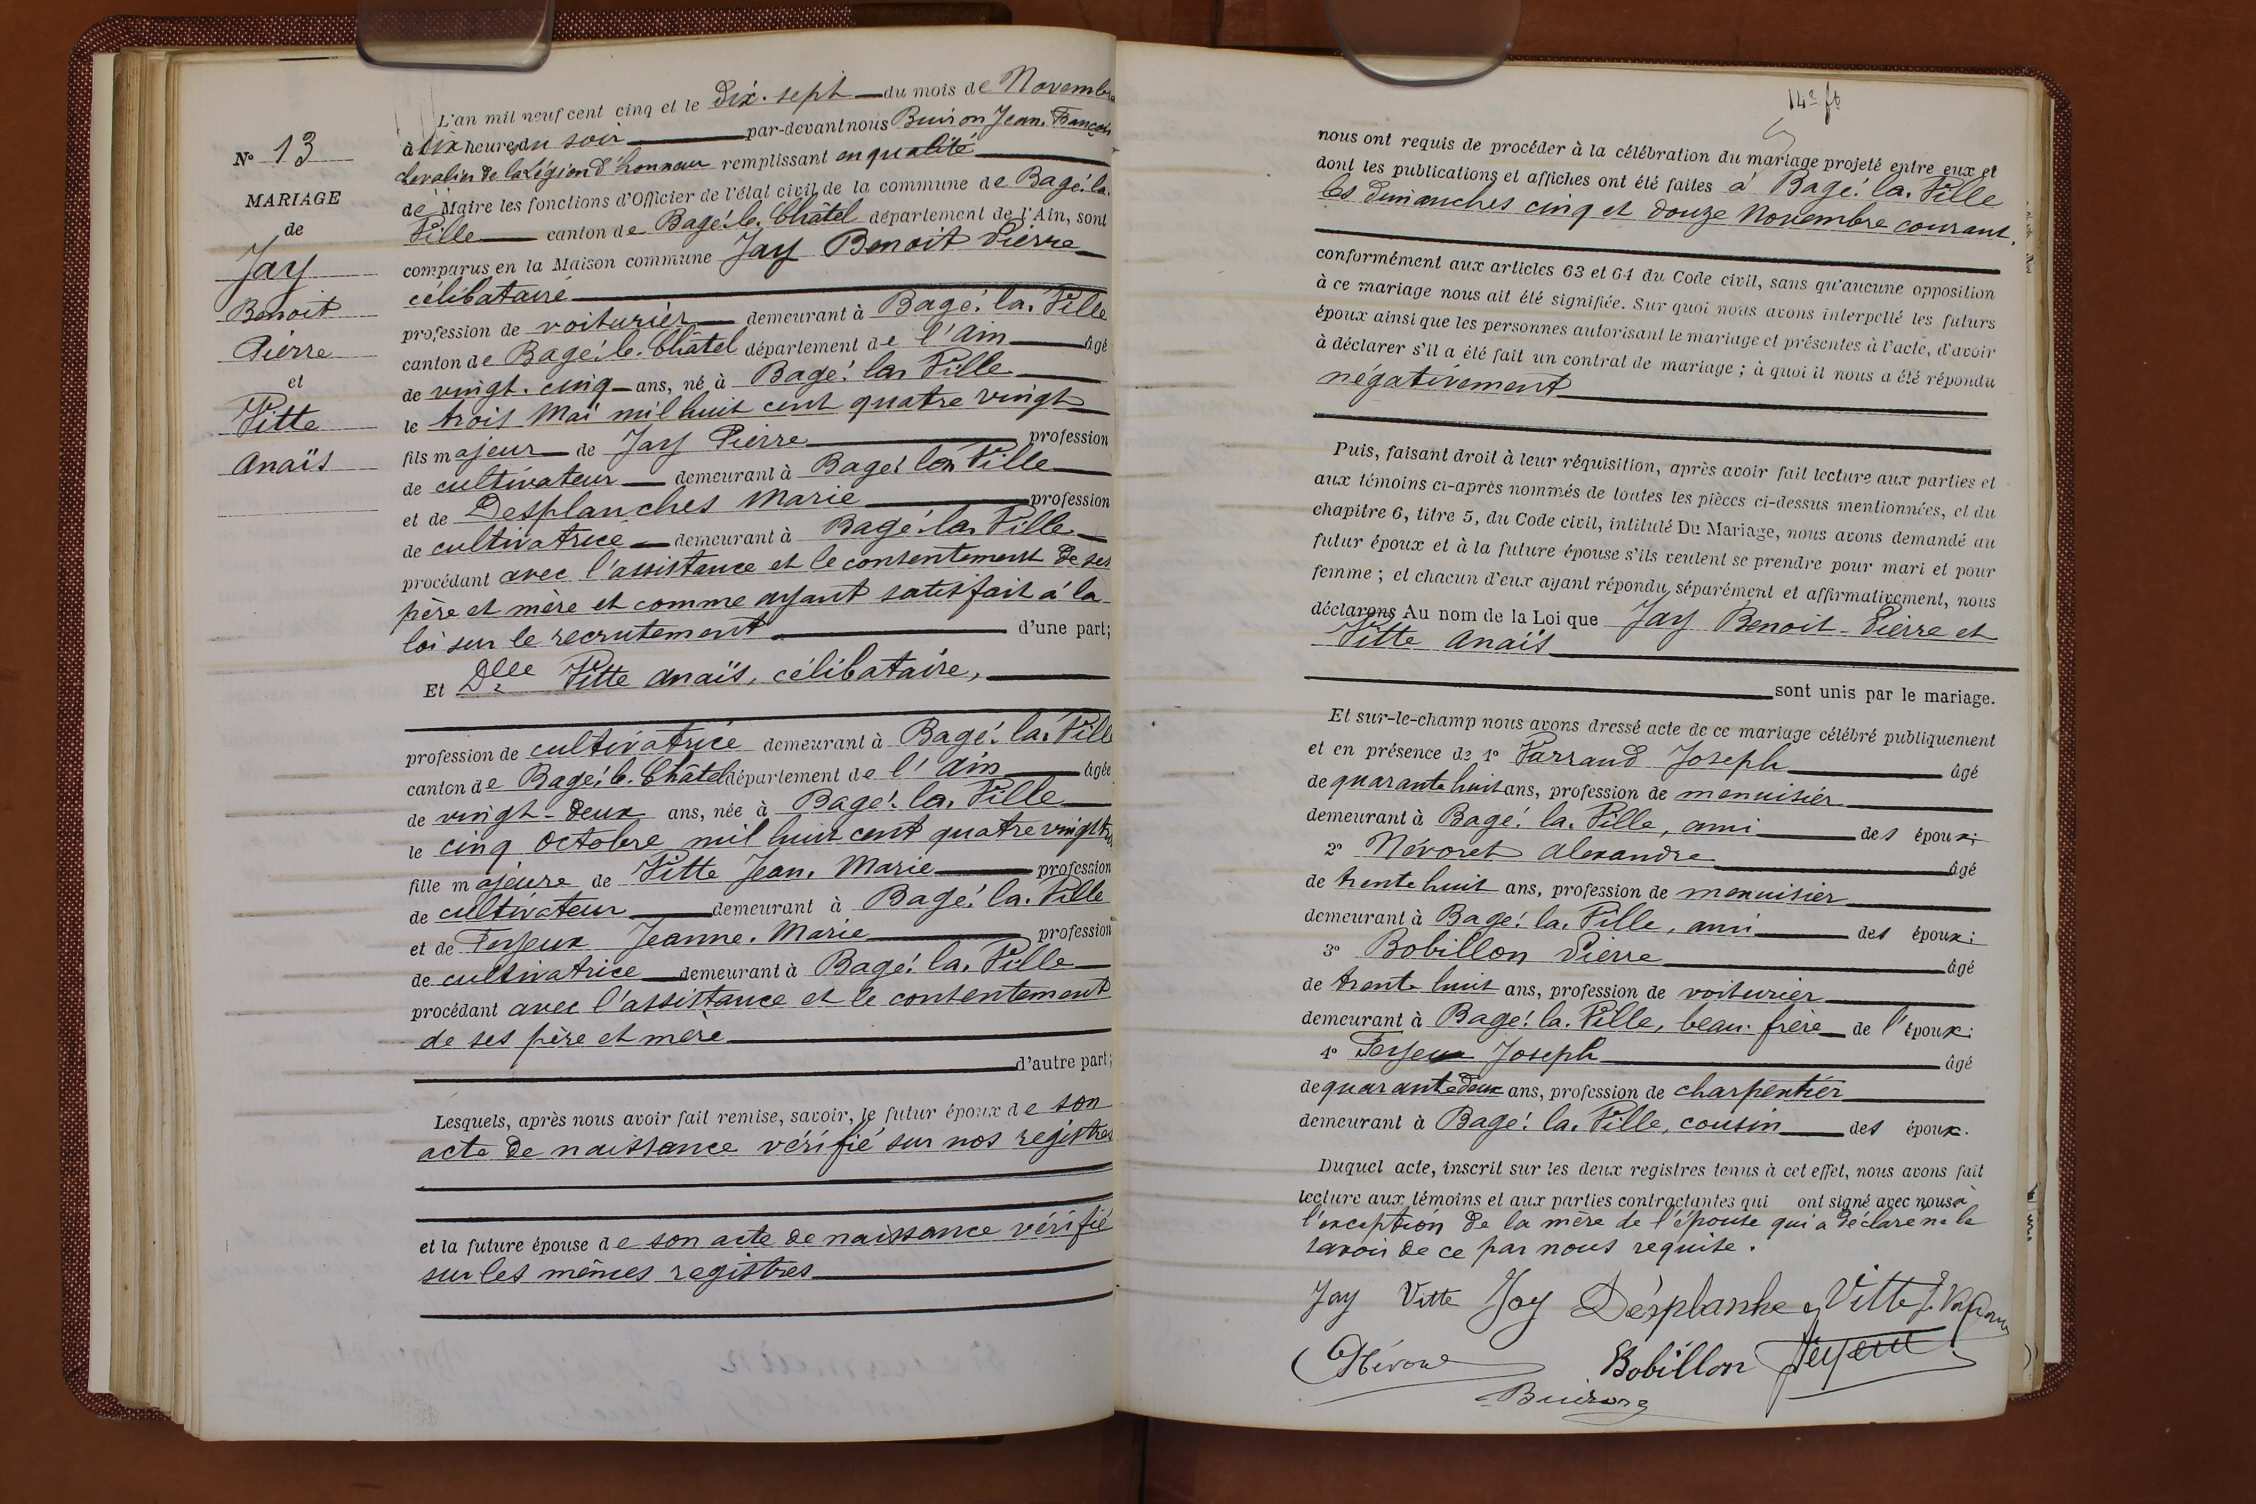 L'an mil neuf cent cinq et le dix-sept du mois de Novembre
à six heures du soir par-devant nous Buiron Jean-François
chevalier de la Légion d'honneur remplissant en qualité
de Maire les fonctions d'Officier de l'état civil de la commune de Bagé-la-
Ville canton de Bagé-le-Châtel département de l'Ain, sont
comparus en la Maison commune Jay Benoit Pierre
célibataire
profession de voiturier demeurant à Bagé-la-Ville
canton de Bagé-le-Châtel département de l'Ain âgé
de vingt-cinq ans, né à Bagé-la-Ville
le trois Mai mil huit cent quatre vingt
fils majeur de Jay Pierre profession
de cultivateur demeurant à Bagé-la-Ville
et de Desplanches Marie profession
de cultivatrice demeurant à Bagé-la-Ville
procédant avec l'assistance et le consentement de ses
père et mère et comme ayant satisfait à la
loi sur le recrutement d'une part;
Et Dlle Vitte Anaïs, célibataire,
profession de cultivatrice demeurant à Bagé-la-Ville
canton de Bagé-le-Châtel département de l'Ain âgée
de vingt-deux ans, née à Bagé-la-Ville
le cinq Octobre mil huit cent quatre vingt
fille majeure de Vitte Jean-Marie profession
de cultivateur demeurant à Bagé-la-Ville
et de Feyeux Jeanne-Marie profession
de cultivatrice demeurant à Bagé-la-Ville
procédant avec l'assistance et le consentement
de ses père et mère
d'autre part;
Lesquels, après nous avoir fait remise, savoir, le futur époux de son
acte de naissance vérifié sur nos registres
et la future épouse de son acte de naissance vérifié
sur les mêmes registres
N° 13
MARIAGE
de
Jay
Benoit
Pierre
et
Vitte
Anaïs
nous ont requis de procéder à la célébration du mariage projeté entre eux et
dont les publications et affiches ont été faites à Bagé-la-Ville
les dimanches cinq et douze Novembre courant.
conformément aux articles 63 et 64 du Code civil, sans qu'aucune opposition
à ce mariage nous ait été signifiée. Sur quoi nous avons interpellé les futurs
époux ainsi que les personnes autorisant le mariage et présentes à l'acte, d'avoir
à déclarer s'il a été fait un contrat de mariage; à quoi il nous a été répondu
négativement
Puis, faisant droit à leur réquisition, après avoir fait lecture aux parties et
aux témoins ci-après nommés de toutes les pièces ci-dessus mentionnées, et du
chapitre 6, titre 5, du Code civil, intitulé Du Mariage, nous avons demandé au
futur époux et à la future épouse s'ils veulent se prendre pour mari et pour
femme; et chacun d'eux ayant répondu séparément et affirmativement, nous
déclarons Au nom de la Loi que Jay Benoit-Pierre et
Vitte Anaïs
sont unis par le mariage.
Et sur-le-champ nous avons dressé acte de ce mariage célébré publiquement
et en présence de 1° Joseph âgé
de quarante huit ans, profession de menuisier
demeurant à Bagé-la-Ville, ami des époux;
2° Névoret Alexandre âgé
de trente huit ans, profession de menuisier
demeurant à Bagé-la-Ville, ami des époux;
3° Bobillon Pierre âgé
de trente huit ans, profession de voiturier
demeurant à Bagé-la-Ville, beau-frère de l'époux;
4° Feyeux Joseph âgé
de quarante deux ans, profession de charpentier
demeurant à Bagé-la-Ville, cousin des époux.
Duquel acte, inscrit sur les deux registres tenus à cet effet, nous avons fait
lecture aux témoins et aux parties contractantes qui ont signé avec nous à
l'exception de la mère de l'épouse qui a déclaré ne le
savoir de ce par nous requise.
Jay Vitte Jay Désplanhe Vitte
Névoret Bobillon Feyeux
Buiron